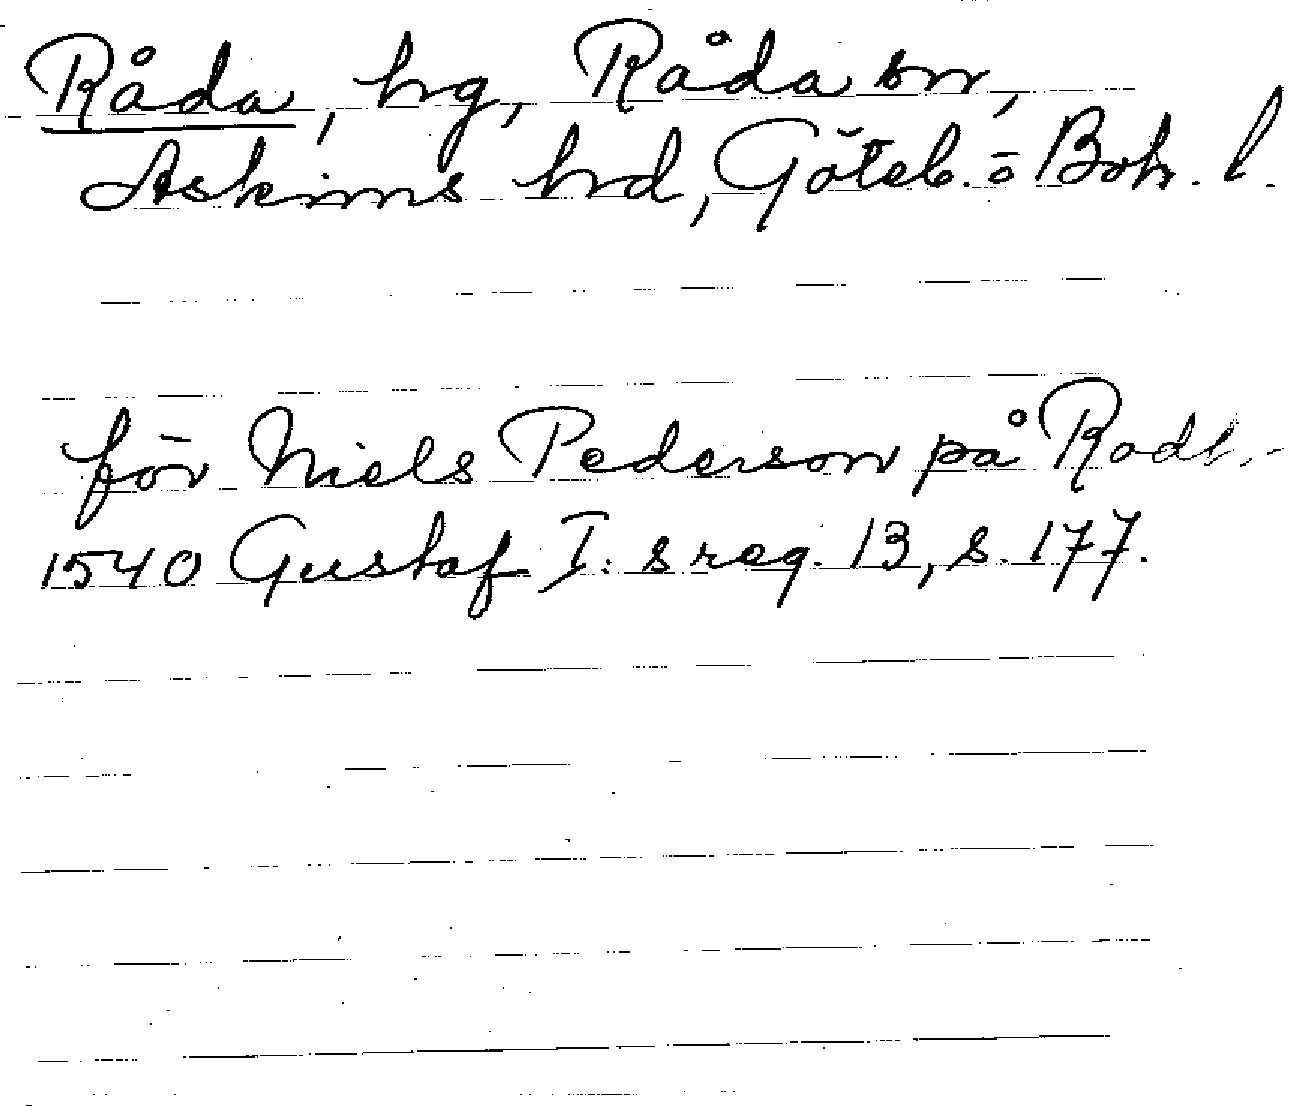 Råda, hg, Råda sn,
Askims hd, Göteb. o Boh. l.
för Niels Pederson på Rodt..
1540 Gustaf I: s reg. 13, s. 177.